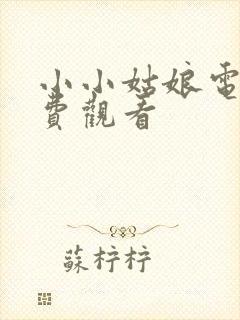 小小姑娘電
費觀看
蘇梓梓